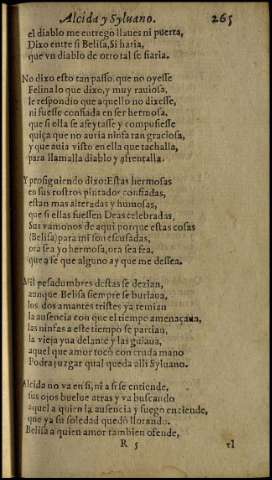 Alcida y Syluano. 265
el diablo me entregò llaues ni puerta,
Dixo entre si Belisa, Si haria,
que vn diablo de otro tal se fiaria.
No dixo esto tan passo, que no oyesse
Felina lo que dixo, y muy rauiosa,
le respondio que aquello no dixesse,
ni fuesse confiada en ser hermosa,
que si ella se afeytasse y compusiesse
quiça que no auria ninfa tan graciosa,
y que auia visto en ella que tachalla,
para llamalla diablo y afrentalla.
Y prosiguiendo dixo: Estas hermosas
en sus rostros pintados confiadas,
estan mas alteradas y humosas,
que si ellas fuessen Deas celebradas,
Sus vamonos de aqui porque estas cosas
(Belisa) para mi son escusadas,
ora sea yo hermosa, ora sea fea,
que a fe que alguno ay que me dessea.
Mil pesadumbres destas se dezian,
aunque Belisa siempre se burlaua,
los dos amantes tristes ya temian
la ausencia con que el tiempo amenaçaua,
las ninfas a este tiempo se partian,
la vieja yua delante y las guiaua,
aquel que amor tocó con cruda mano
Podra juzgar qual queda alli Syluano.
Alcida no va en si, ni a si se entiende,
sus ojos buelue atras y va buscando
aquel a quien la ausencia y fuego enciende,
que ya su soledad quedó llorando.
Belisa a quien amor tambien ofende,
R 5 el